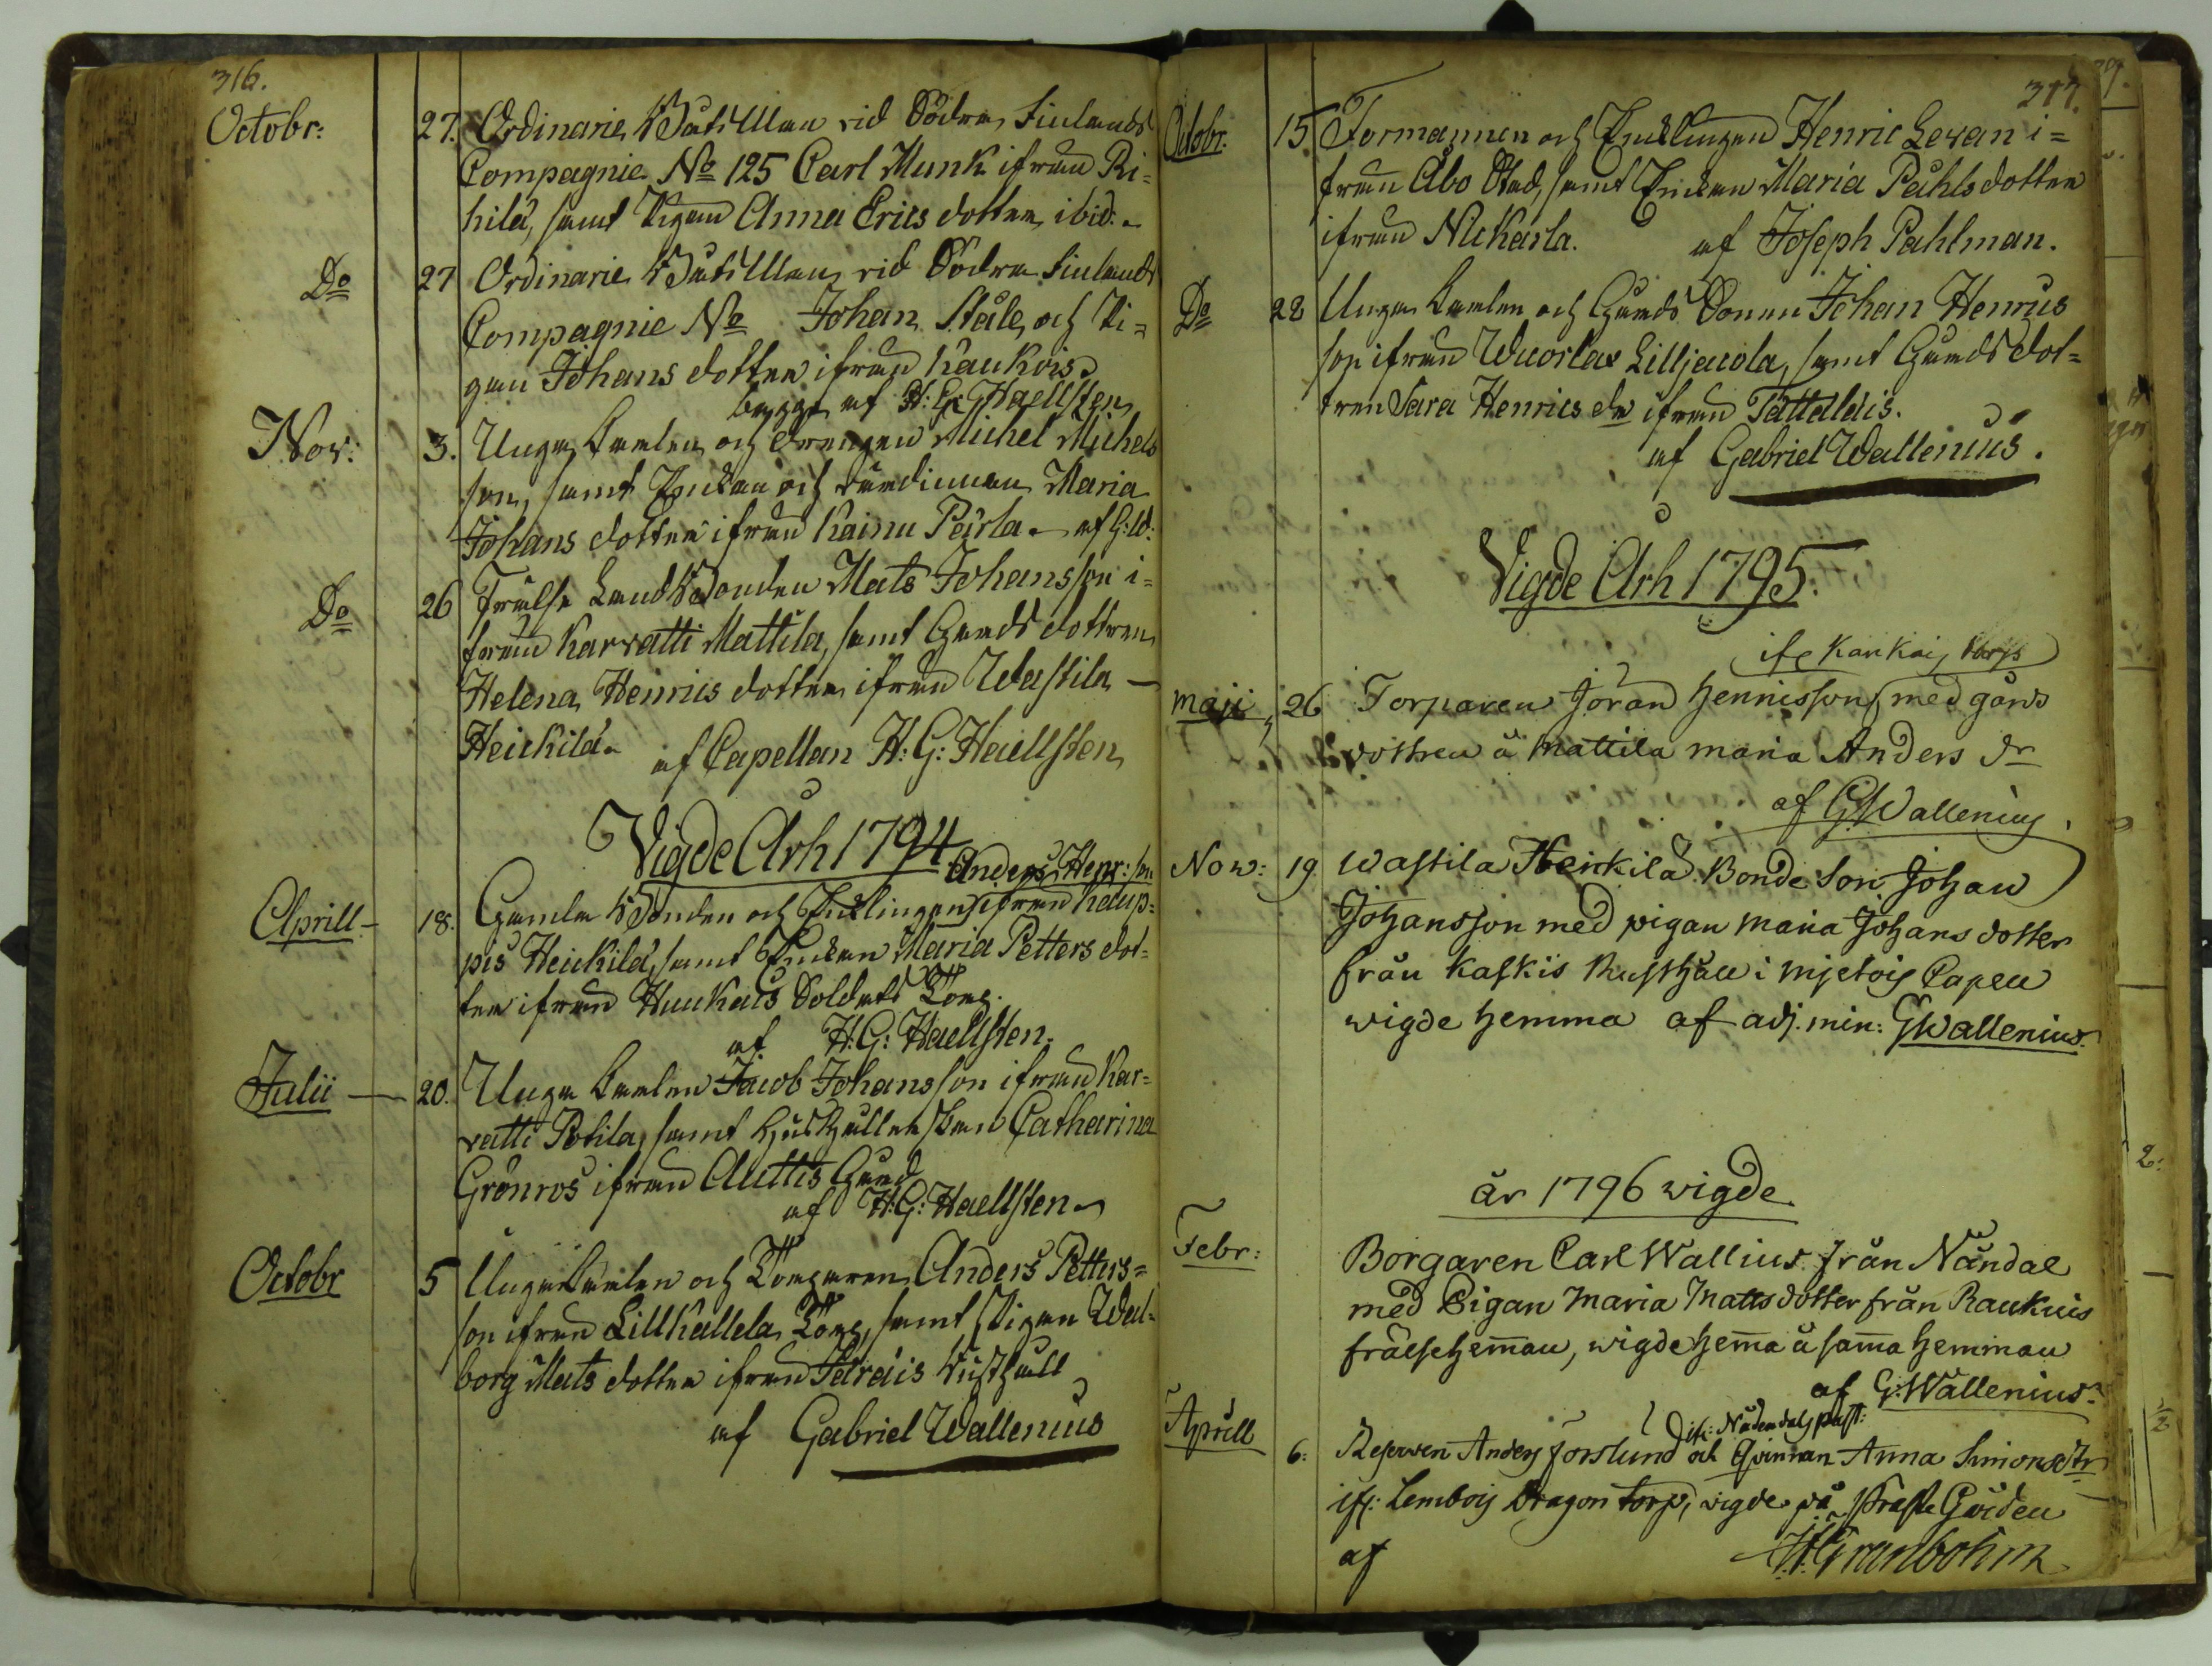 316.
Octobr: 27. Ordinarie BåtsMan vid Södra Finlands
Compagnie No 125 Carl Munk ifrån Ri=
hilä, samt Pigan Anna Erics dotter ibid.
Do 27 Ordinarie BåtsMan vid Södra Finlands
Compagnie No Johan Ståle, och Pi=
gan Johans dotter ifrån Kaukois
begge af H: G: Haellsten
Nov: 3. Unga Karlen och drengen Michel Michels
son, samt Enkan och Värdinnan Maria
Johans dotter ifrån Kainu Peirla. af G: W:
Do 26 Frälse LandtBonden Mats Johansson i=
från Karvatti Mattila, samt Gårds dottren
Helena Henrics dotter ifrån Wastila
Heickilä. af Capellan H: G: Haellsten
Vigde Åhr 1794
Anders Henr: son
Aprill 18. Gamla Bonden och Enklingen ifrån Kaup=
pis Heickilä, samt Enkan Maria Petters dot=
ter ifrån Huukais Soldats Torp.
af H: G: Haellsten.
Julii 20. Unga Karlen Jacob Johansson ifrån Kar=
vatti Potila, samt Hushållerskan Catharina
Grönros ifrån Auttis Gård
af H: G: Haellsten
Octobr 5 Unga Karlen och Torparen Anders Petters=
son ifrån Lill Kallela Torp, samt Pigan Wal=
borg Mats dotter ifrån Järäis Rusthåll
af Gabriel Wallenius
317.
Octobr. 15 Formannen och Enklingen Henric Levan i=
från Åbo Stad, samt Enkan Maria Påhls dotter
ifrån Nickarla. af Joseph Pahlman.
Do 28 Unga Karlen och Gårds Sonen Johan Henrics
son ifrån Wuorlax Lilljaiola, samt Gårds dot=
tren Sara Henrics dr ifrån Tattaláis.
af Gabriel Wallenius.
Vigde Åhr 1795.
ifr Kankais torp
Maji 26 Torparen Jöran Hennisson med gårds
dottren å Mattila Maria Anders dr
af G Wallenius.
Now: 19 Wastila Heickilä Bonde Son Johan
Johansson med pigan Maria Johans dotter
från Kaskis Rusthåll i Mjetois Capell
wigde hemma af adj. min: G Wallenius.
år 1796 wigde
Febr: Borgaren Carl Wallius från Nåndal
med Pigan Maria Matts dotter från Raukuis
frälsehem̄an, wigde hem̄a å sam̄a hemman
af G: Wallenius.
ifr: Nådendals past:
Aprill 6: Reserven Anders Forslund och Qvinnan Anna Simonsdtr
ifr: Lembois Dragon torp, wigde på Präste Gården
af H. Granbohm